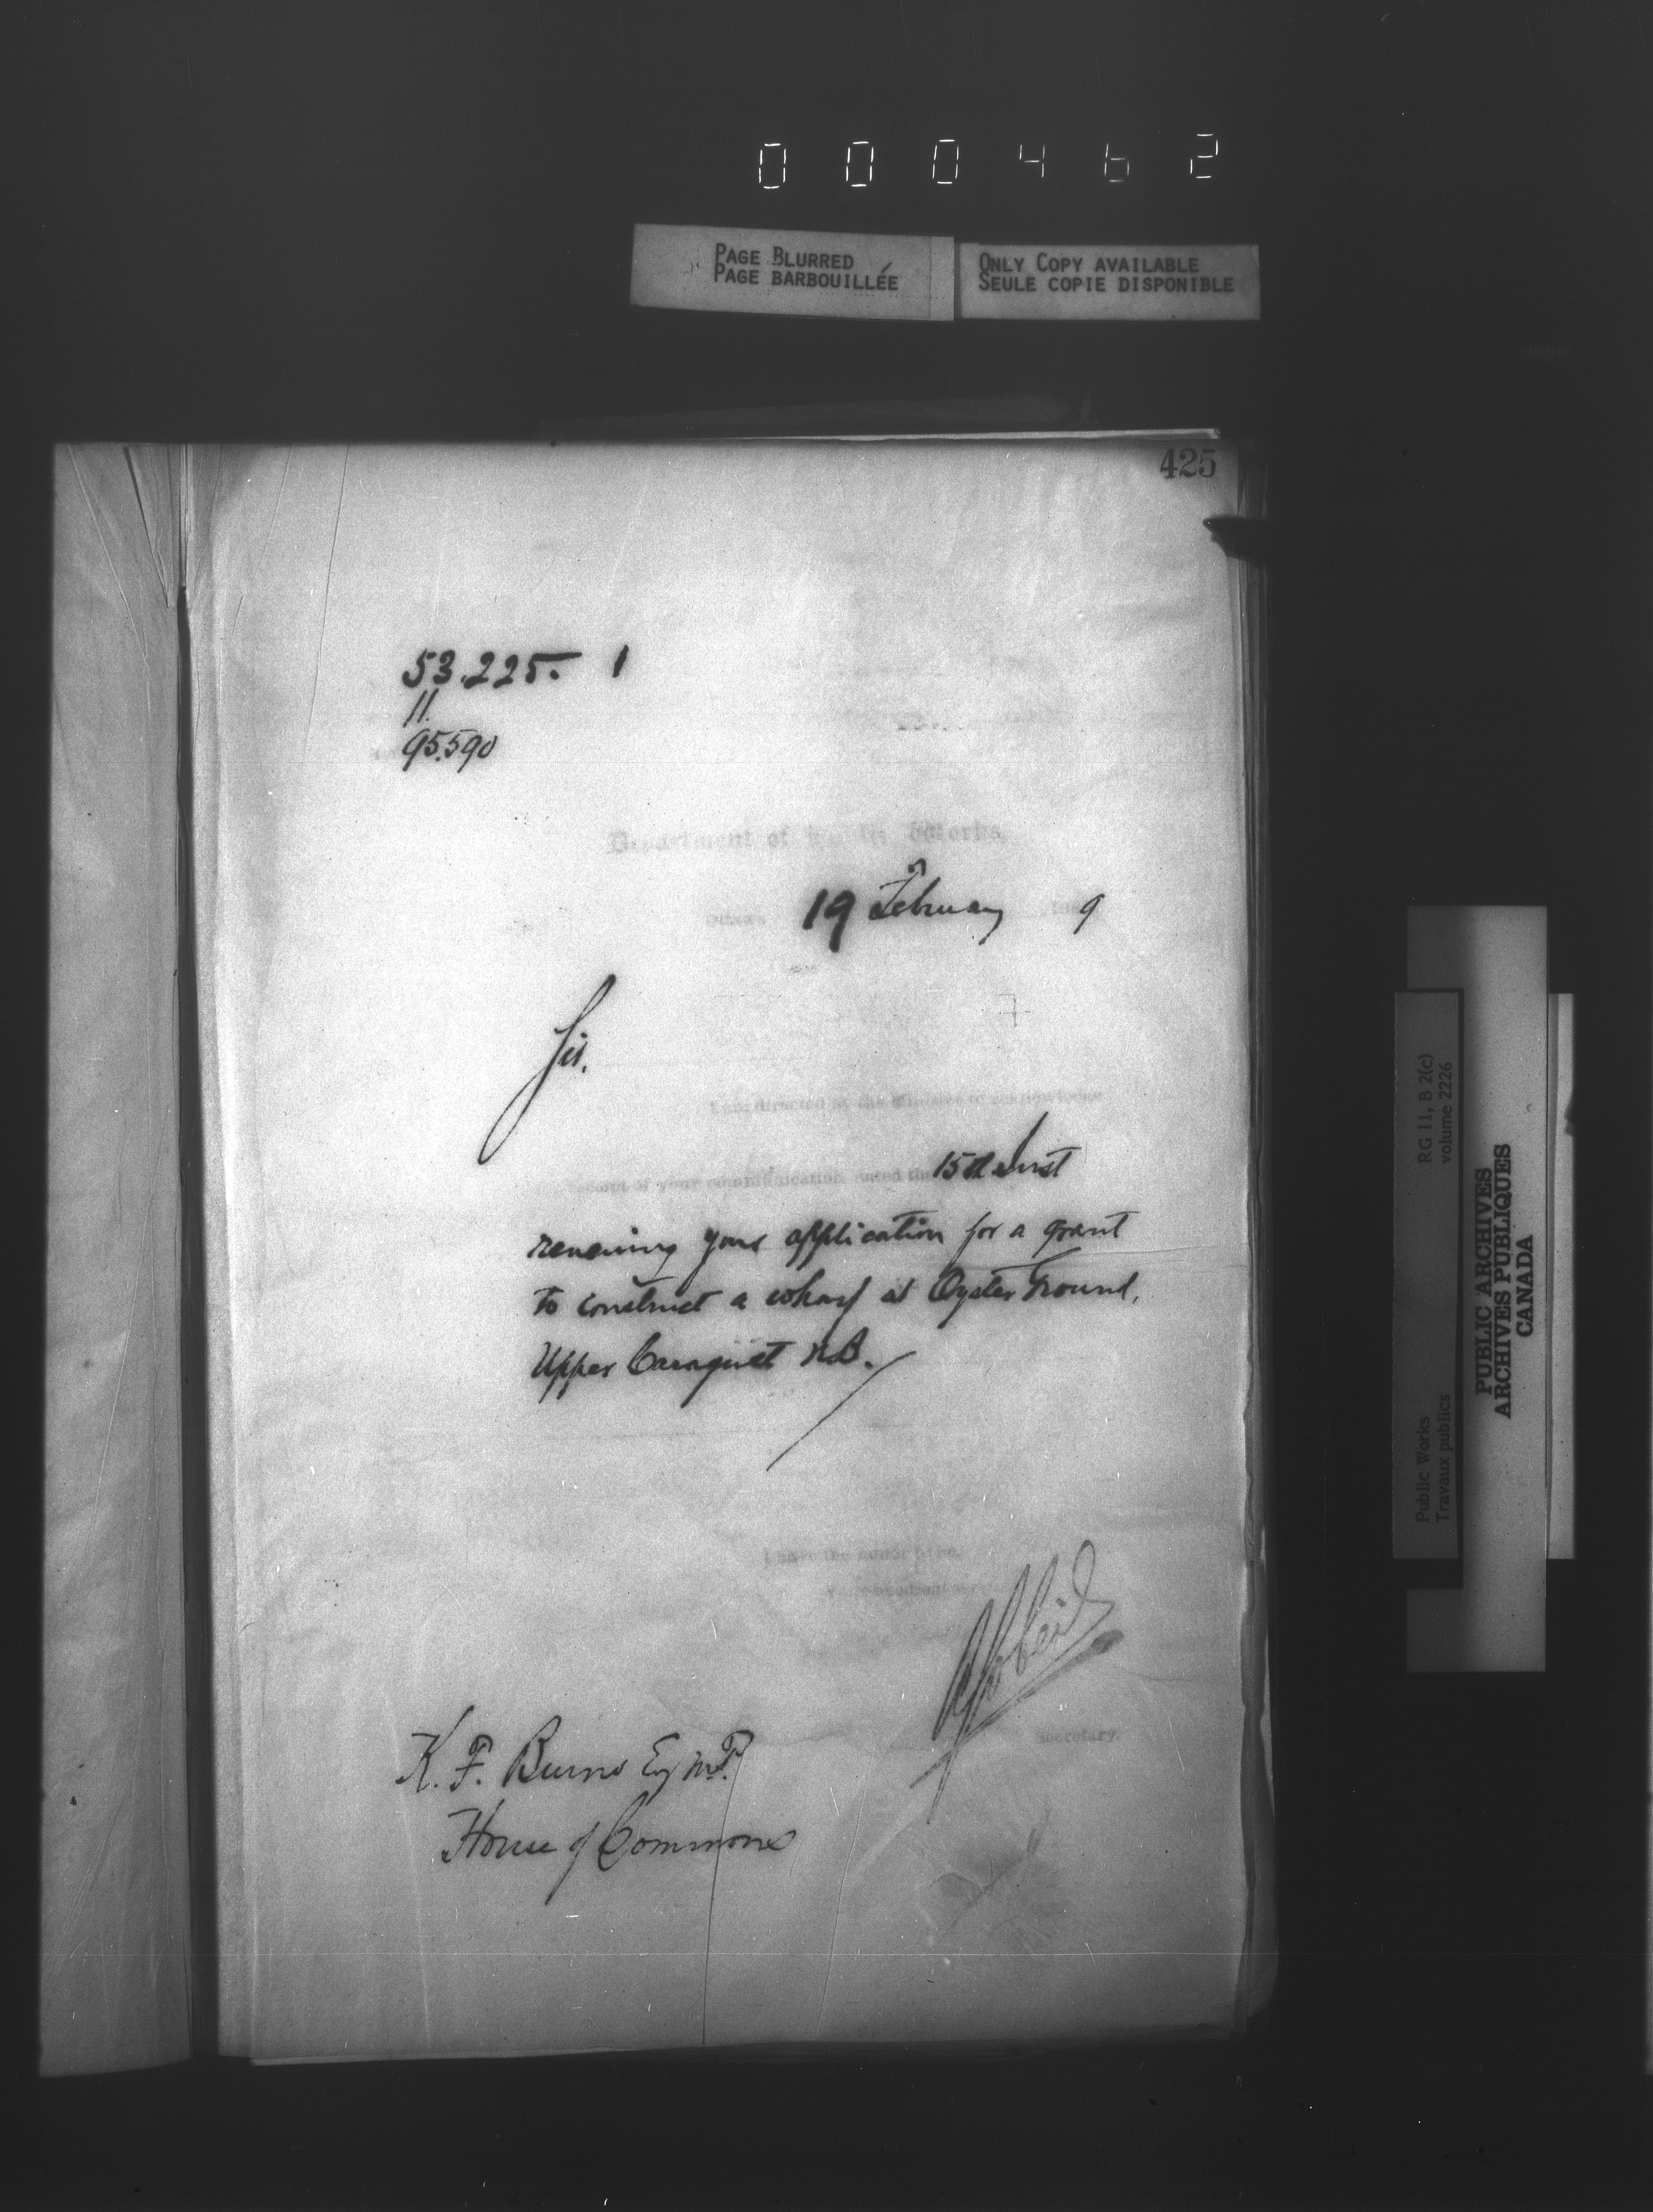 000462
PAGE BLURRED
PAGE BARBOUILLÉE
ONLY COPY AVAILABLE
SEULE COPIE DISPONIBLE
425
53.225. 1
11.
95.590
Department of Public Works,
Ottawa 19 February 188 9
Sir.
I am directed by the Minister to acknowledge
receipt of your communication dated the 15th Inst
renewing your application for a grant
to construct a wharf at Oyster Ground,
Upper Caraquet N.B.
I have the honor to be,
Your obedient servant
Secretary.
K. F. Burns Esq M.P.
House of Commons
Public Works
Travaux publics
RG 11, B 2(c)
volume 2226
PUBLIC ARCHIVES
ARCHIVES PUBLIQUES
CANADA